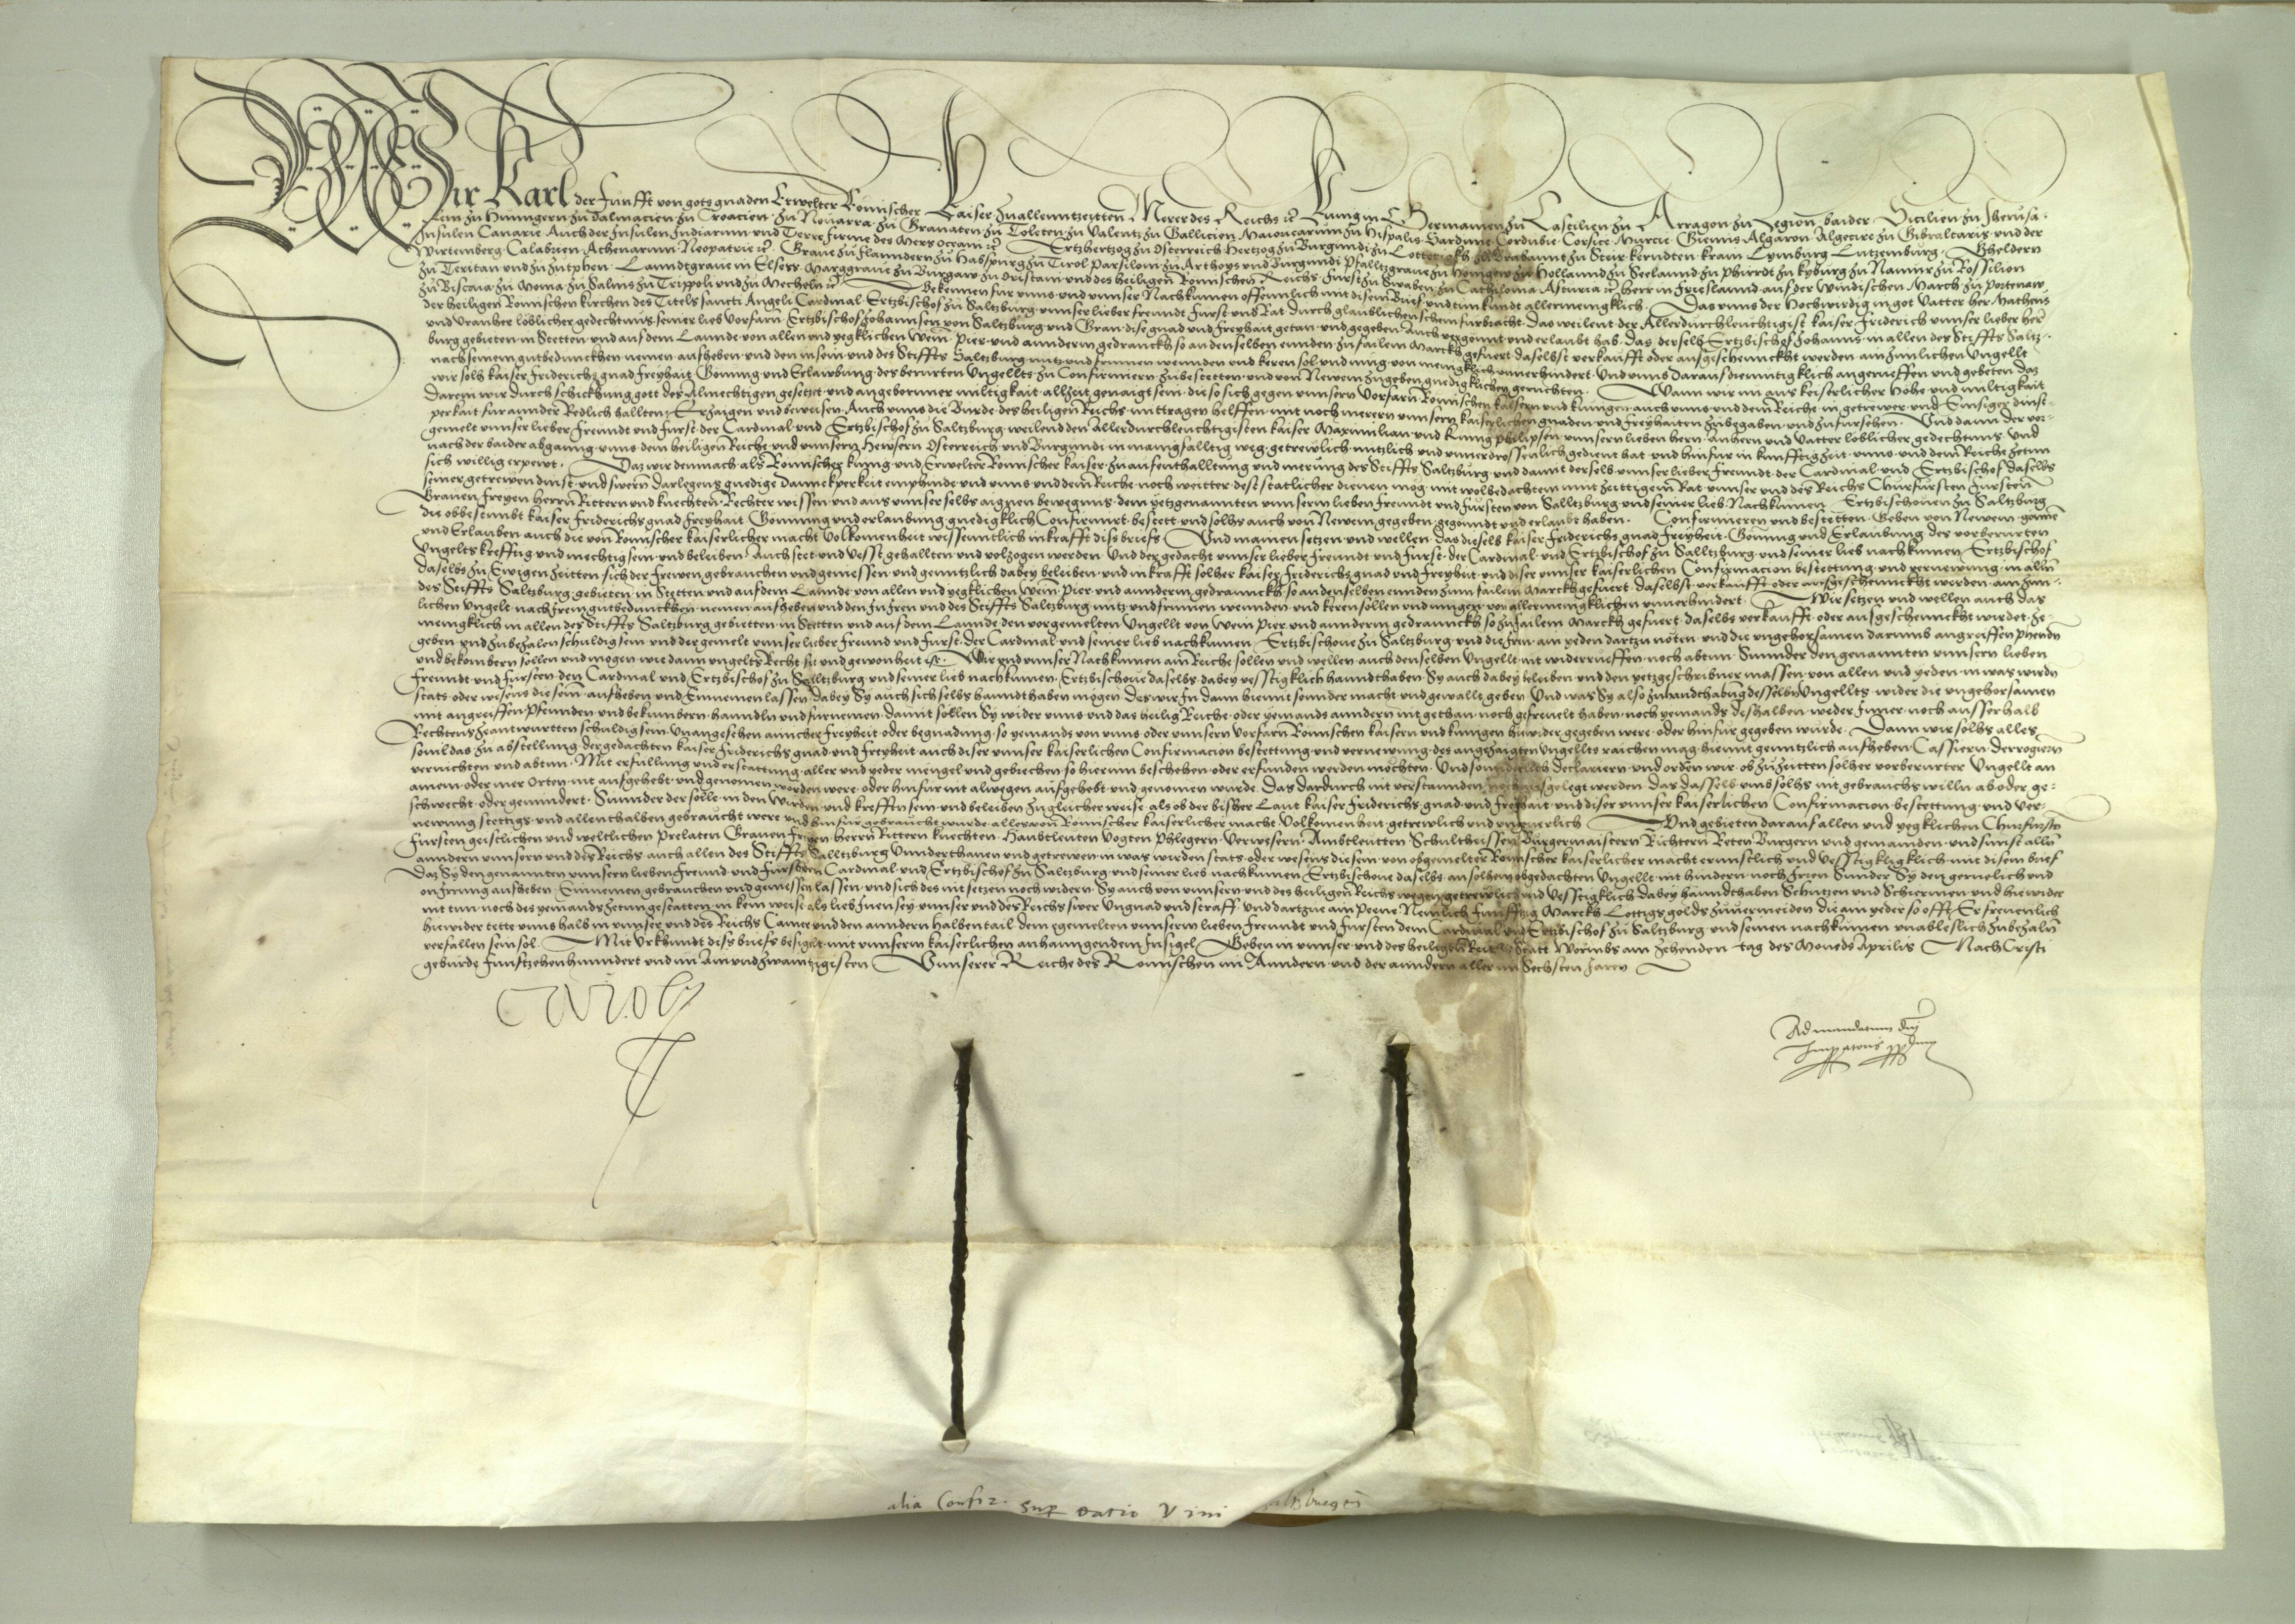 Wir Karl der Funfft von gots gnaden Erwelter Romischer Kaiser zu allenntzeitten Merer des Reichs etc Kunig in Germanien zu Castilien zu Arragon zu Legion baider Sicilien zu Jherusa-
lem zu Hungern zu Dalmacien zu Croacien zu Navarra zu Granaten zu Toleten zu Valentz zu Gallicien Maioricarum zu Hispalis Sardinie Cordubie Corsice Murcie Giennis Algarbn Algecire zu Gibraltaris und der
Insulen Canarie Auch der Insulen Indiarum und Terre firme des Mers Oceani etc Ertzhertzog zu Osterreich Hertzog zu Burgundi zu Lotterigkh zu Brabannt zu Steir Kerndten Krain Lymburg Lutzemburg Gheldern
Wirtemberg Calabrien Athenarum Neopatrie etc Grave zu Flanndern zu Habspurg zu Tirol Parsiloni zu Arthoys und Burgundi Pfalltzgrave zu Henigew zu Hollannd zu Seelannd zu Phirrdt zu Kyburg zu Namur zu Rossilion
zu Ceritan und zu Zutphen Lanndtgrave in Elsess Marggrave zu Burgaw zu Oristani und des heiligen Romischen Reichs Furst zu Swaben zu Cathilonia Asturia etc herr in Frieslannd auf der Windischen March zu Portenaw
zu Biscaia zu Monia zu Salins zu Trippoli und zu Mecheln etc Bekennen fur unns und unnser Nachkumen offennlich mit disem Brief und tun kundt allermenigklich Das unns der Hochwirdig in got Vatter her Matheus
der heiligen Romischen kirchen des Titels sancti Angeli Cardinal Ertzbischof zu Saltzburg unnser lieber freundt Furst und Rat durch glaublichen schein furbracht Das weilent der Allerdurchleuchtigist kaiser Friderich unnser lieber herr
und Uranher loblicher gedechtnus seiner lieb vorfarn Ertzbischof Johannsen von Saltzburg und Gran dise gnad und freyhait getan und gegeben Auch vergonnt und erlaubt hab Das derselb Ertzbischof Johanns in allen des Stiffts Saltz-
burg gebieten in Stetten und auf dem Lannde von allen und yegklichen Wein Pier und annderm gedrannckh so an denselben ennden zu failem Marckh gefuert daselbst verkaufft oder ausgeschennckht werden ain zimlichen Ungellt
nach seinem gutbedunckhen nemen aufheben und den in sein und des Stiffts Saltzburg nutz und frumen wennden und keren sol und mug von menigklich unverhindert Und unns darauf diemutigklich angerueffen und gebeten daz
wir solh kaiser Friderichs gnad freyhait Gonnung und Erlawbung des berurten Ungellts zu Confirmiern zu bestetten und von Newem zu geben gnedigklichen geruchten Wann wir nu aus keiserlicher Hohe und miltigkait
darein wir durch schickhung gott des Almechtigen gesetzt und angeborner miltigkait allzeit genaigt sein die so sich gegen unnsern Vorfarn Romischen kaisern und kunigen auch unns und dem Reiche in getrewer und Emsiger dinst-
perkait fur annder Redlich hallten Erzaigen und beweisen Auch unns die Burde des heiligen Reichs mittragen helffen mit noch merern unnsern kaiserlichen gnaden und freyhaiten zu begaben und zu fursehen Und dann der vor-
gemelt unnser lieber Freundt und Furst der Cardinal und Ertzbischof zu Saltzburg weilend den Allerdurchleuchtigisten kaiser Maximilian und kunig Philipsen unnsern lieben hern anhern und Vatter loblicher gedechtnus Und
nach der baider abganng unns dem heiligen Reiche und unnsern Hewsern Osterreich und Burgundi in manigfalltig weg getrewlich nutzlich und unverdrossenlich gedient hat und hinfur in kunfftig zeit unns und dem Reiche zetun
sich willig erpewt Daz wir demnach als Romischer kunig und Erwelter Romischer kaiser zu aufenthalltung und merung des Stiffts Saltzburg und damit derselb unnser lieber freundt der Cardinal und Ertzbischof daselbs
seiner getrewen dinst und swern darlegens gnedige dannckperkeit emphinde und unns und dem Reiche noch weitter dest statlicher dienen mog mit wolbedachtem mut zeittigem Rat unnser und des Reichs Churfursten Fursten
Graven Freyen herrn Rittern und knechten Rechter wissen und aus unnser selbs aignen bewegnus dem yetzgenannten unnserm lieben freundt und fursten von Salltzburg und seiner lieb Nachkumen Ertzbischoven zu Saltzburg
die obbestimbt kaiser Friderichs gnad freyhait Gonnung und erlaubung gnedigklich Confirmirt bestett und solhs auch von Newem gegeben gegonndt und erlaubt haben Confirmieren und bestetten Geben von Newem gonnen
und Erlauben auch die von Romischer kaiserlicher macht Volkomenheit wissenntlich in krafft diss briefs Und mainen setzen und wellen das diselb kaiser Friderichs gnad freyheit Gonnung und Erlaubung des vorberurten
Ungelts krefftig und mechtig sein und beleiben Auch stet und vesst gehallten und volzogen werden Und der gedacht unnser lieber freundt und furst der Cardinal und Ertzbischof zu Salltzburg und seiner lieb nachkumen Ertzbischof
daselbs zu Ewigen zeitten sich der frewen gebrauchen und geniessen und genntzlich dabey beleiben und in krafft solher kaiser Friderichs gnad und freyheit und diser unnser kaiserlichen Confirmacion bestettung und vernewung in alln
des Stiffts Saltzburg gebieten in Stetten und auf dem Lannde von allen und yegklichen Wein Pier und annderm gedrannckh so an denselben ennden zum failem Marckh gefuert daselbst verkaufft oder ausgeschennckht werden ain zim-
lichen Ungelt nach irem gutbedunckhen nemen aufheben und den zu iren und des Stiffts Saltzburg nutz und frumen wennden und keren sollen und mugen von allermenigklichen unverhindert Wir setzen und wellen auch das
menigklich in allen des Stiffts Saltzburg gebietten in Stetten und auf dem Lannde den vorgemelten Ungellt von Wein Pier und annderm gedrannckh so zu failem Marckh gefuert daselbs verkaufft oder ausgeschennckht wirdet ze-
geben und zu bezalen schuldig sein und der gemelt unnser lieber freund und Furst der Cardinal und seiner lieb nachkumen Ertzbischove zu Saltzburg und die irn ain yeden dartzu noten und die ungehorsamen darumb angreiffen phenndn
und bekombern sollen und mogen wie dann ungelts Recht sit und gewonheit ist Wir und unnser Nachkumen am Reiche sollen und wellen auch denselben Ungellt nit widerrueffen noch abtun Sunnder den genannten unnsern lieben
freundt und Fursten den Cardinal und Ertzbischof zu Salltzburg und seiner lieb nachkumen Ertzbischove daselbs dabey vesstigklich hanndthaben Sy auch dabey beleiben und den yetzgeschribner massen von allen und yeden in was wirdn
stats oder wesens die sein aufheben und Einnemen lassen dabey Sy auch sich selbs hanndthaben mogen Des wir In dann hiemit sonnder macht und gewallt geben Und was Sy also zu handthabung desselbn Ungellts wider die ungehorsamen
mit angreiffen Pfennden und bekumbern hanndln und furnemen damit sollen Sy wider unns und das heilig Reiche oder yemands anndern nit gethan noch gefrevelt haben noch yemands deshalben weder inner noch ausserhalb
Rechtens zeantwurtten schuldig sein Unangesehen ainicher freyheit oder begnadung so yemands von unns oder unnsern Vorfarn Romischen kaisern und kunigen hiewider gegeben were oder hinfur gegeben wurde Dann wir solhs alles
sovil das zu abstellung der gedachten kaiser Friderichs gnad und freyheit auch diser unnser kaiserlichen Confirmacion bestettung und vernewung des angezaigten Ungellts raichen mag hiemit genntzlich aufheben Cassiern Derrogiern
vernichten und abtun Mit erfullung und erstattung aller und yeder mengel und gebrechen so hierinn beschehen oder erfunden werden mochten Und sonnderlich declariern und orden wir ob zu zeitten solher vorberurter Ungellt an
ainem oder mer Orten nit aufgehebt und genomen worden were oder hinfur nit alwegen aufgehebt und genomen wurde Das dardurch nit verstannden noch ausgelegt werden das dasselb umb solhs nit gebrauchs willn ab oder ge-
schwecht oder gemindert Sunnder der solle in den Wirden und krefften sein und beleiben zu gleicher weise als ob der bisher Laut kaiser Friderichs gnad und freyhait und diser unnser kaiserlichen Confirmacion bestettung und ver-
newung stettigs und allenthalben gebraucht were und hinfur gebraucht wurde alles von Romischer kaiserlicher macht Volkomenheit getrewlich und ungeverlich Und gebieten darauf allen und yegklichen Churfursten
Fursten geistlichen und weltlichen Prelaten Graven Freyen Herrn Rittern knechten Haubtleuten Vogten Phlegern Verwesern Ambtleutten Schultheissen Burgermaistern Richtern Reten Burgern und gemainden und sunst alln
anndern unnsern und des Reichs auch allen des Stiffts Salltzburg Unnderthanen und getrewen in was wirden stats oder wesens die sein von obgemelter Romischer kaiserlicher macht ernnstlich und Vesstigkligklich mit disem brief
Daz Sy den genannten unnsern lieben Freund und Fursten den Cardinal und Ertzbischof zu Saltzburg und seiner lieb nachkumen Ertzbischove daselbs an solhem obgedachten Ungellt nit hindern noch Irren Sunder Sy den geruelich und
on Irrung aufheben Einnemen gebrauchen und geniessen lassen und sich des nit setzen noch widern Sy auch von unnsern und des heiligen Reichs wegen getrewlich und Vesstigklich dabey hanndthaben Schutzen und Schirmen und hiewider
nit tun noch des yemands zetun gestatten in kein weise als lieb Inen sey unnser und des Reichs swer Ungnad und straff und dartzue ain peene Nemlich Funfftzig Marckh Lottigs golds zuvermeiden die ain yeder so offt Er frevenlich
hiewider tette unns halb in unnser und des Reichs Camer und den anndern halben tail dem egemelten unnserm lieben Freundt und Fursten dem Cardinal und Ertzbischof zu Saltzburg und seinen nachkumen unableslich zu bezaln
verfallen sein sol Mit Urkhundt diss briefs besigelt mit unnserm kaiserlichen anhanngendem Insigel Geben in unnser und des heiligen Reichs Statt Wormbs am Zehenden tag des Moneds Aprilis Nach Cristi
geburde Funfftzehenhunndert und im Ain und zwaintzigisten Unnserer Reiche des Romischen im Anndern und der anndern aller im Sechsten Jaren
Carolus
Ad mandatum dni
Imperatoris pp dnm
alia Confir. sup datio Vini